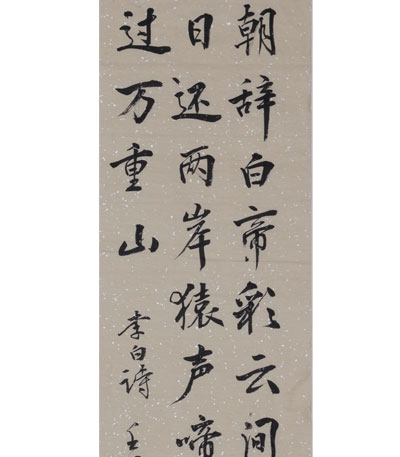 朝辞白帝彩云间
日还两岸猿声啼
过万重山
李白诗 壬